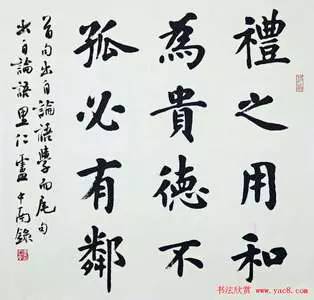 禮之用和
為貴德不
孤必有鄰
首句出自論語學而尾句
出自論語里仁盧中南錄
书法欣赏
www.yac8.com